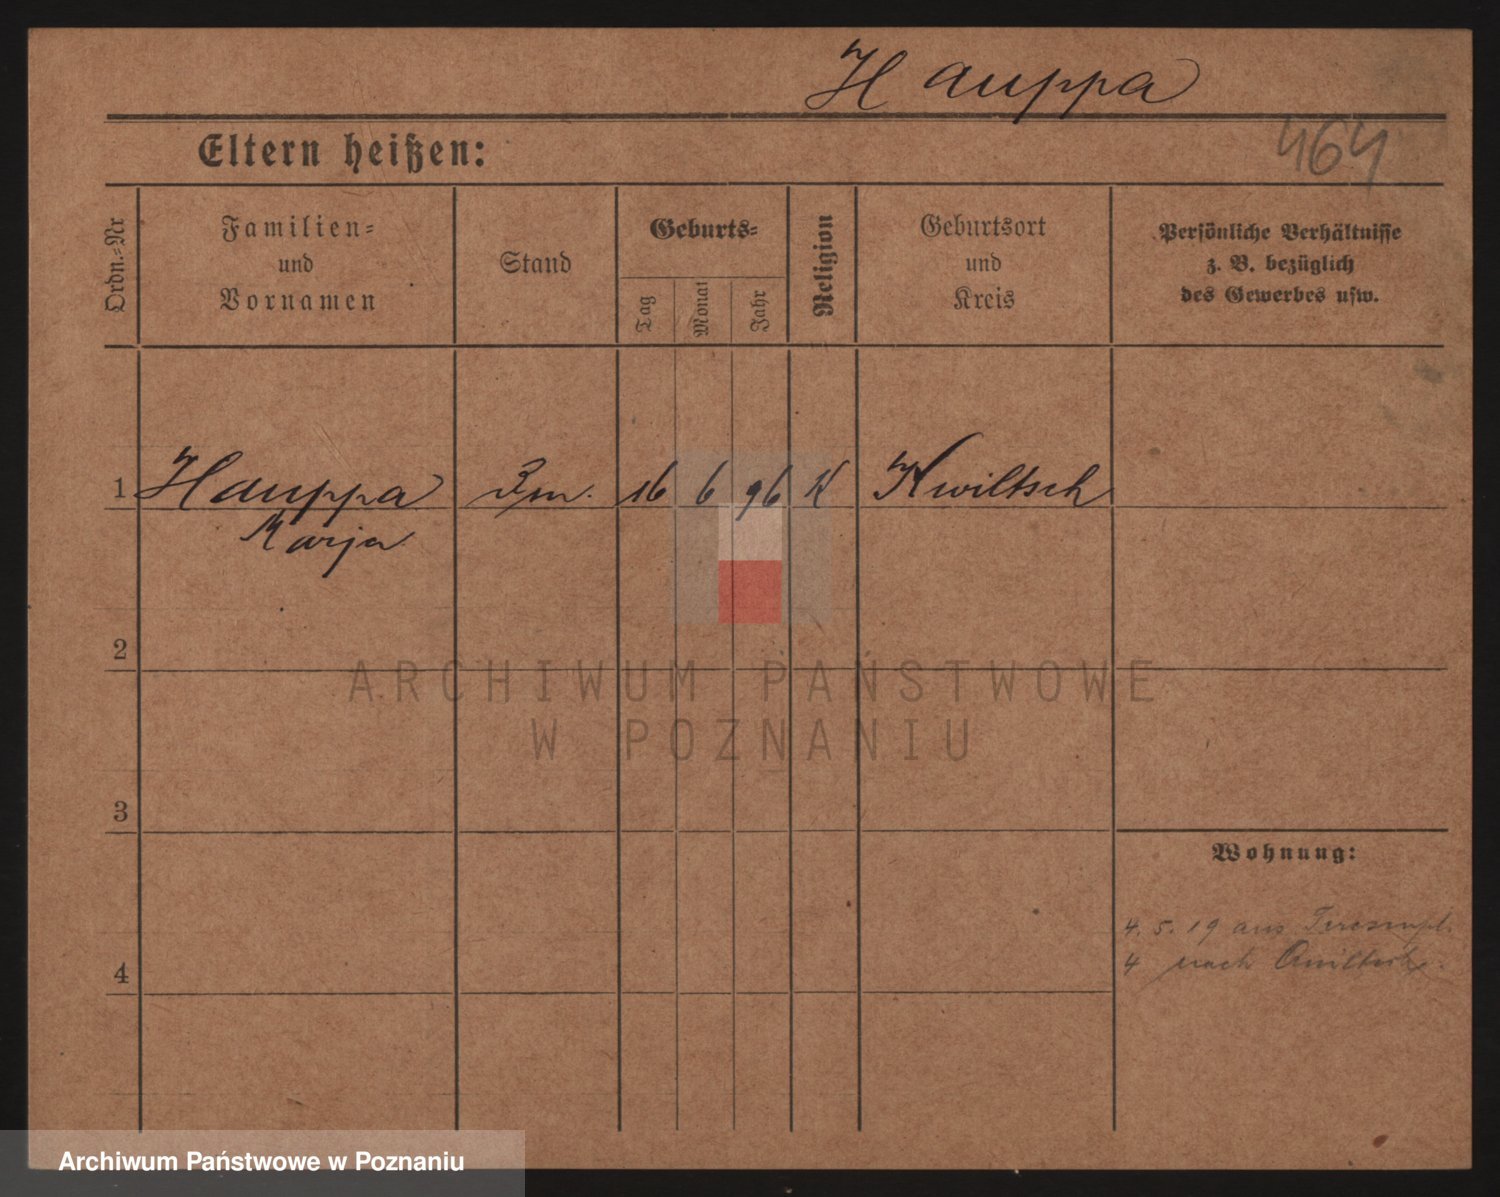 Hauppa
464
Eltern heißen:
Ordn.-Nr
Familien-
und
Vornamen
Stand
Geburts-
Tag
Monat
Jahr
Religion
Geburtsort
und
Kreis
Persönliche Verhältnisse
z. B. bezüglich
des Gewerbes usw.
1 Hauppa 16 6 96 K Kwiltsch
Marja
2
3
4
Wohnung:
4. 5. 19 aus
4 nach
ARCHIWUM PAŃSTWOWE
W POZNANIU
Archiwum Państwowe w Poznaniu